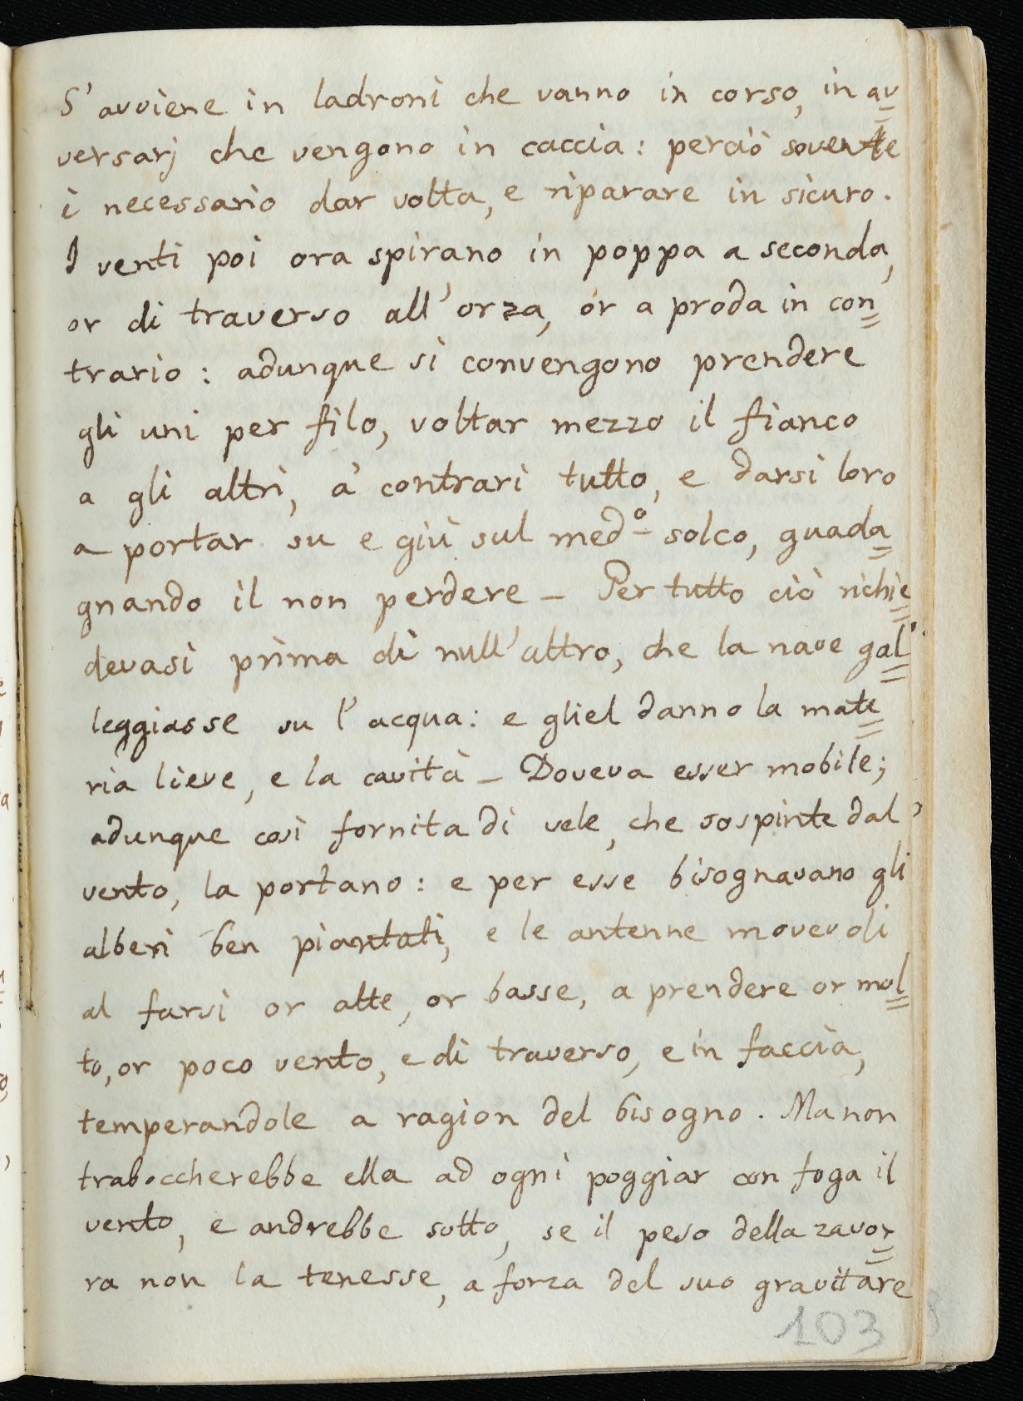 S'avviene in ladroni che vanno in corso, in av=
versarj che vengono in caccia: perciò sovente
è necessario dar volta, e riparare in sicuro.
I venti poi ora spirano in poppa a seconda,
or di traverso all'orza, or a proda in con=
trario: adunque si convengono prendere
gli uni per filo, voltar mezzo il fianco
a gli altri, a' contrari tutto, e darsi loro
a portar su e giù sul med.º solco, guada=
gnando il non perdere – Per tutto ciò richie=
devasi prima di null'altro, che la nave gal=
leggiasse su l'acqua: e gliel danno la mate=
ria lieve, e la cavità – Doveva esser mobile;
adunque così fornita di vele, che sospinte dal
vento, la portano: e per esse bisognavano gli
alberi ben piantati, e le antenne movevoli
al farsi or alte, or basse, a prendere or mol=
to, or poco vento, e di traverso, e in faccia,
temperandole a ragion del bisogno. Ma non
traboccherebbe ella ad ogni poggiar con foga il
vento, e andrebbe sotto, se il peso della zavor=
ra non la tenesse, a forza del suo gravitare
103